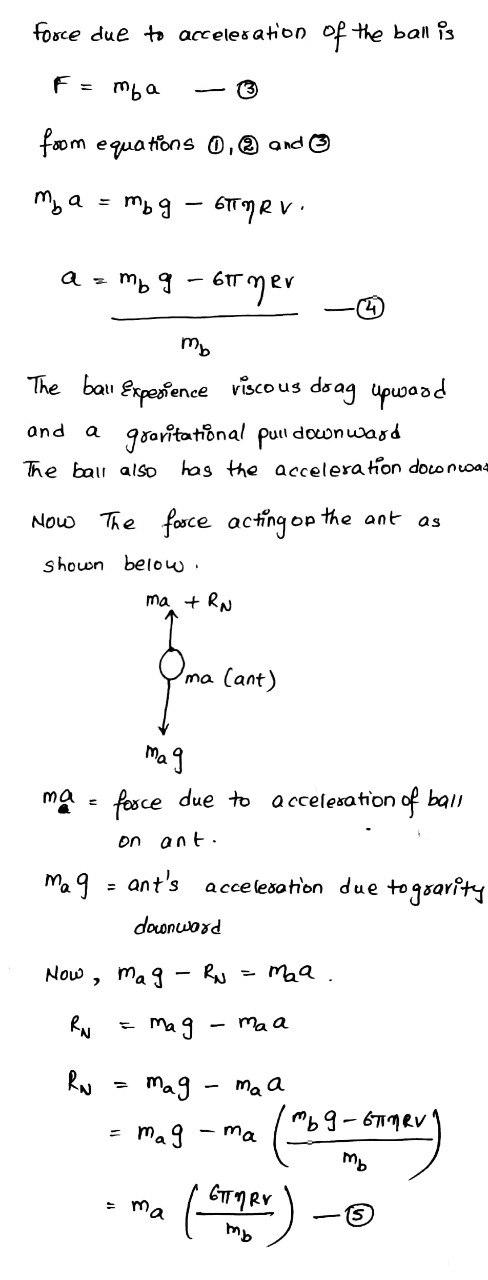 force due to acceleration of the ball is
F = m_b a — ③
from equations ①, ② and ③
m_b a = m_b g − 6πηRV.
a = (m_b g − 6πηRV) / m_b — ④
The ball Experience viscous drag upward
and a gravitational pull downward
The ball also has the acceleration downwa
Now The force acting on the ant as
shown below.
ma + R_N
ma (ant)
m_a g
m_a a = force due to acceleration of ball
on ant.
m_a g = ant's acceleration due to gravity
downward
Now, m_a g − R_N = m_a a.
R_N = m_a g − m_a a
R_N = m_a g − m_a a
= m_a g − m_a ((m_b g − 6πηRV) / m_b)
= m_a (6πηRV / m_b) — ⑤